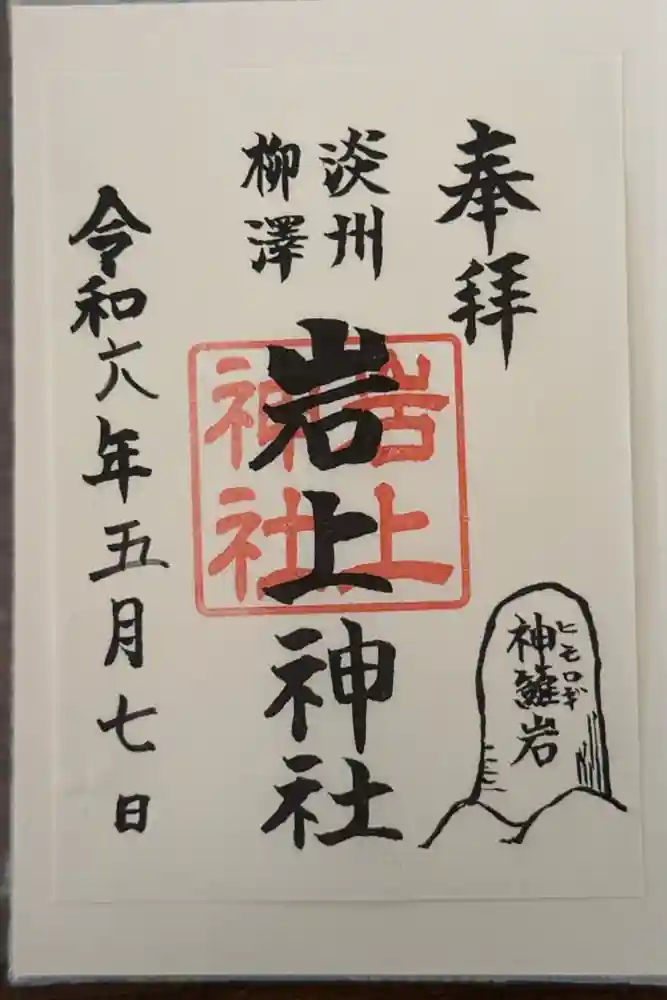 奉拝
淡州
柳澤
岩上神社
岩上
神社
神籬岩
ヒモロギ
令和六年五月七日